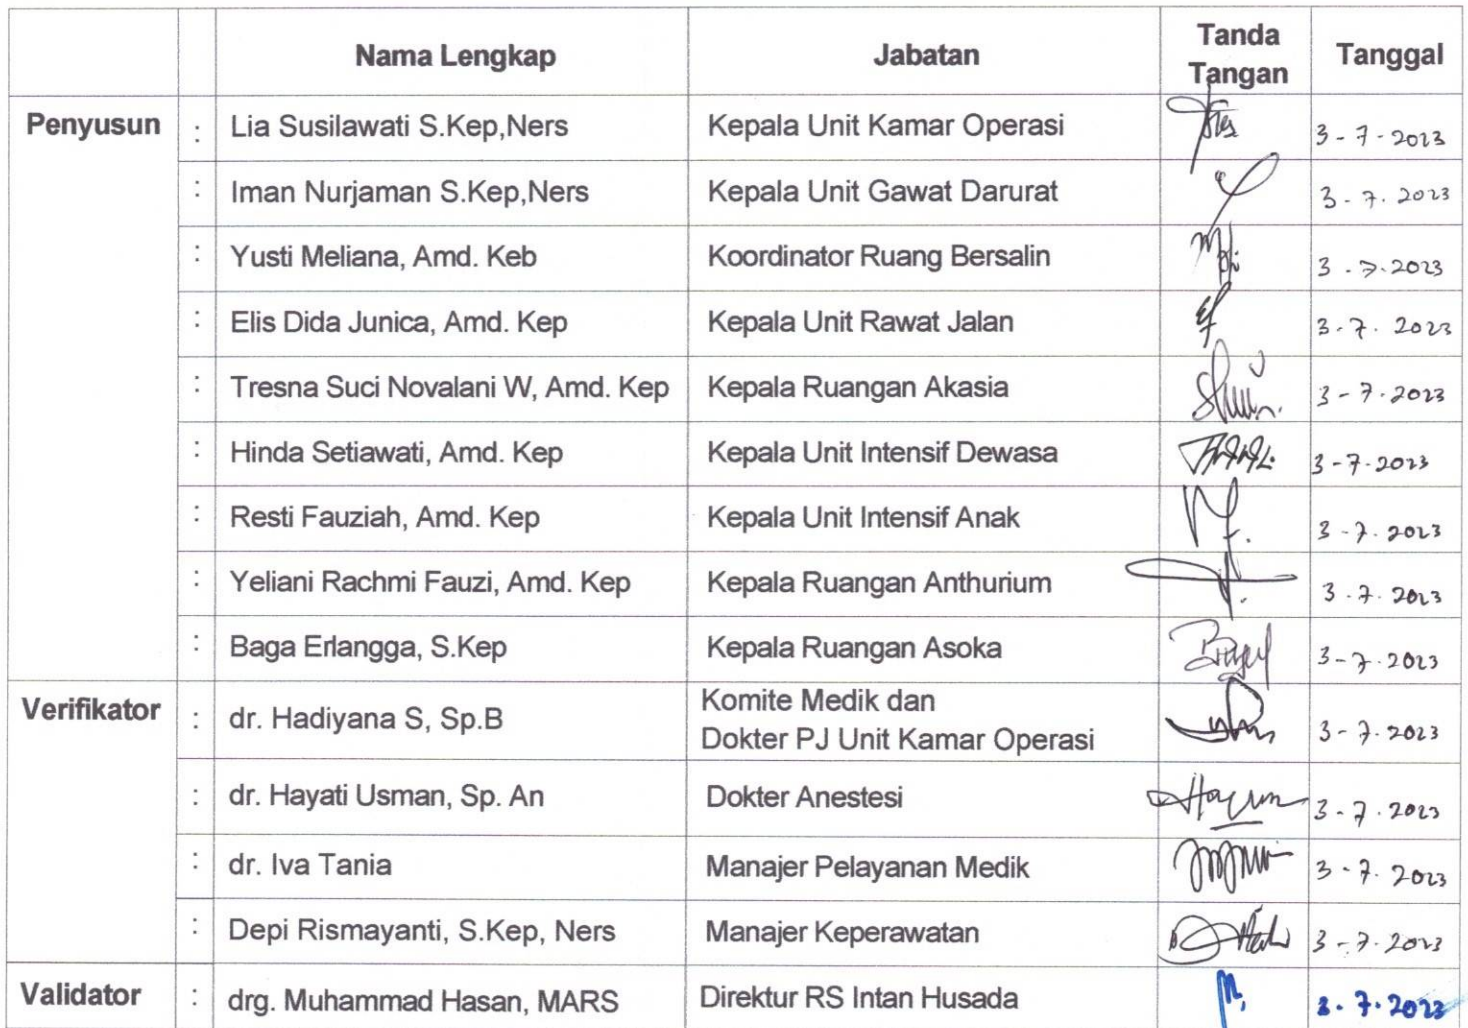 Nama Lengkap Jabatan Tanda Tangan Tanggal
Penyusun : Lia Susilawati S.Kep,Ners Kepala Unit Kamar Operasi 3-7-2023
: Iman Nurjaman S.Kep,Ners Kepala Unit Gawat Darurat 3-7.2023
: Yusti Meliana, Amd. Keb Koordinator Ruang Bersalin 3.7.2023
: Elis Dida Junica, Amd. Kep Kepala Unit Rawat Jalan 3-7.2023
: Tresna Suci Novalani W, Amd. Kep Kepala Ruangan Akasia 3-7.2023
: Hinda Setiawati, Amd. Kep Kepala Unit Intensif Dewasa 3-7-2023
: Resti Fauziah, Amd. Kep Kepala Unit Intensif Anak 3-7.2023
: Yeliani Rachmi Fauzi, Amd. Kep Kepala Ruangan Anthurium 3-7.2023
: Baga Erlangga, S.Kep Kepala Ruangan Asoka 3-7.2023
Verifikator : dr. Hadiyana S, Sp.B Komite Medik dan
Dokter PJ Unit Kamar Operasi 3-7.2023
: dr. Hayati Usman, Sp. An Dokter Anestesi 3-7.2023
: dr. Iva Tania Manajer Pelayanan Medik 3-7.2023
: Depi Rismayanti, S.Kep, Ners Manajer Keperawatan 3-7.2023
Validator : drg. Muhammad Hasan, MARS Direktur RS Intan Husada 3.7.2023